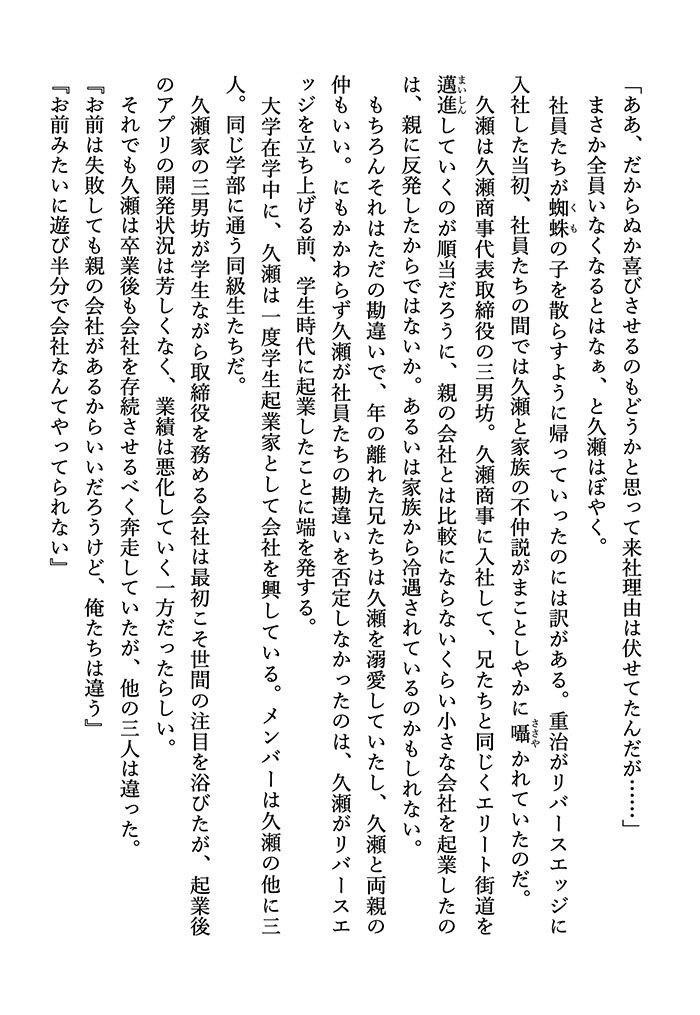 「ああ、だからぬか喜びさせるのもどうかと思って来社理由は伏せてたんだが……」
まさか全員いなくなるとはなぁ、と久瀬はぼやく。
社員たちが蜘蛛の子を散らすように帰っていったのには訳がある。重治がリバースエッジに
入社した当初、社員たちの間では久瀬と家族の不仲説がまことしやかに囁かれていたのだ。
久瀬は久瀬商事代表取締役の三男坊。久瀬商事に入社して、兄たちと同じくエリート街道を
邁進していくのが順当だろうに、親の会社とは比較にならないくらい小さな会社を起業したの
は、親に反発したからではないか。あるいは家族から冷遇されているのかもしれない。
もちろんそれはただの勘違いで、年の離れた兄たちは久瀬を溺愛していたし、久瀬と両親の
仲もいい。にもかかわらず久瀬が社員たちの勘違いを否定しなかったのは、久瀬がリバースエ
ッジを立ち上げる前、学生時代に起業したことに端を発する。
大学在学中に、久瀬は一度学生起業家として会社を興している。メンバーは久瀬の他に三
人。同じ学部に通う同級生たちだ。
久瀬家の三男坊が学生ながら取締役を務める会社は最初こそ世間の注目を浴びたが、起業後
のアプリの開発状況は芳しくなく、業績は悪化していく一方だったらしい。
それでも久瀬は卒業後も会社を存続させるべく奔走していたが、他の三人は違った。
『お前は失敗しても親の会社があるからいいだろうけど、俺たちは違う』
『お前みたいに遊び半分で会社なんてやってられない』